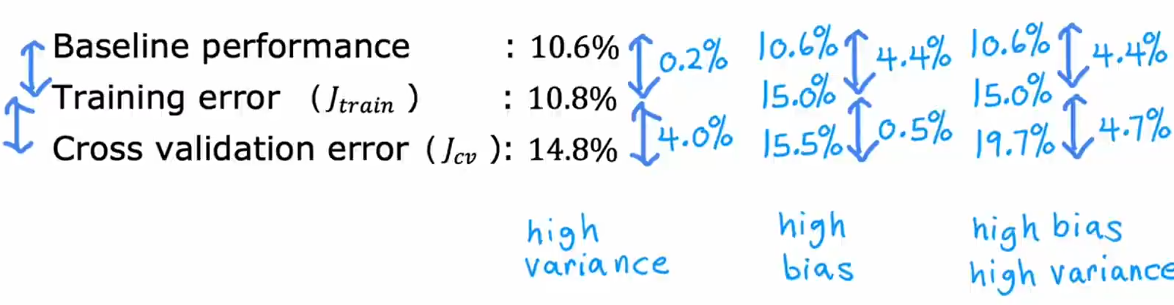 Baseline performance : 10.6% 0.2% 10.6% 4.4% 10.6% 4.4%
Training error (J_train) : 10.8% 15.0% 15.0%
4.0% 0.5% 4.7%
Cross validation error (J_cv): 14.8% 15.5% 19.7%
high high high bias
variance bias high variance